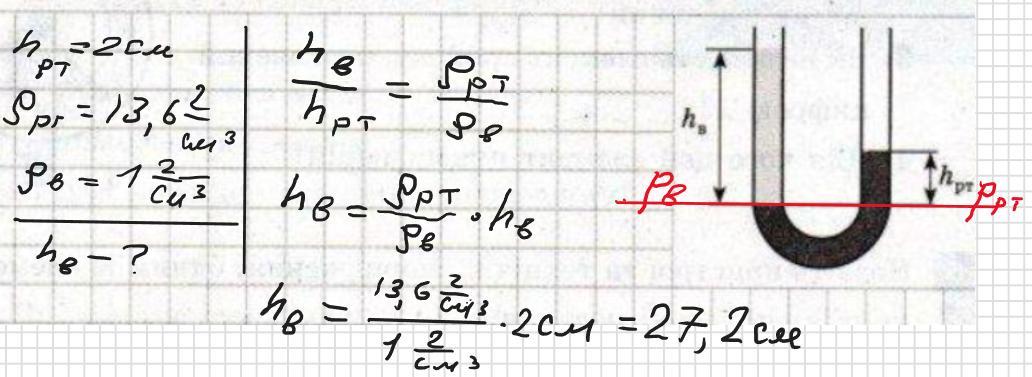 hрт = 2 см
ρрт = 13,6 г/см³
ρв = 1 г/см³
hв – ?
hв/hрт = ρрт/ρв
hв = ρрт/ρв · hв
hв = 13,6 г/см³ / 1 г/см³ · 2 см = 27,2 см
hв
hрт
Pв
Pрт